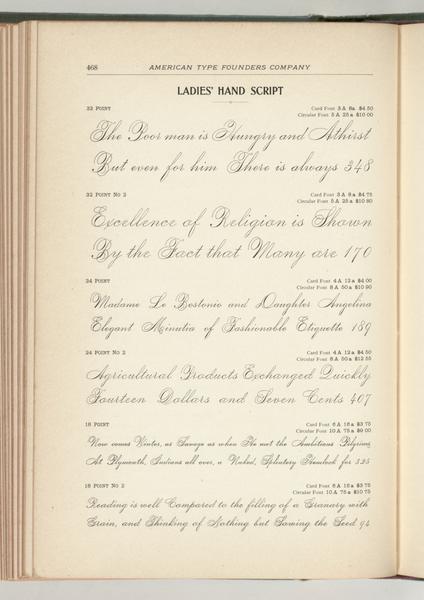 468 AMERICAN TYPE FOUNDERS COMPANY
LADIES' HAND SCRIPT
32 POINT Card Font 3 A 8a $4 50
Circular Font 5 A 25 a $10 00
The Poor man is Hungry and Athirst
But even for him There is always 348
32 POINT NO 2 Card Font 3 A 8 a $4 75
Circular Font 5 A 25 a $10 80
Excellence of Religion is Shown
By the Fact that Many are 170
24 POINT Card Font 4 A 12 a $4 00
Circular Font 8 A 50 a $10 90
Madame Le Bostonio and Daughter Angelina
Elegant Minutia of Fashionable Etiquette 189
24 POINT NO 2 Card Font 4 A 12 a $4 50
Circular Font 8 A 50 a $12 55
Agricultural Products Exchanged Quickly
Fourteen Dollars and Seven Cents 407
18 POINT Card Font 6 A 16 a $3 75
Circular Font 10 A 75 a $9 00
Now comes Winter, as Savage as when He met the Ambitious Pilgrims
At Plymouth, Indians all over, a Naked, Hemlock for 525
18 POINT NO 2 Card Font 6 A 16 a $3 75
Circular Font 10 A 75 a $10 75
Reading is well Compared to the filling of a Granary with
Grain, and Thinking of Nothing but Sowing the Seed 94